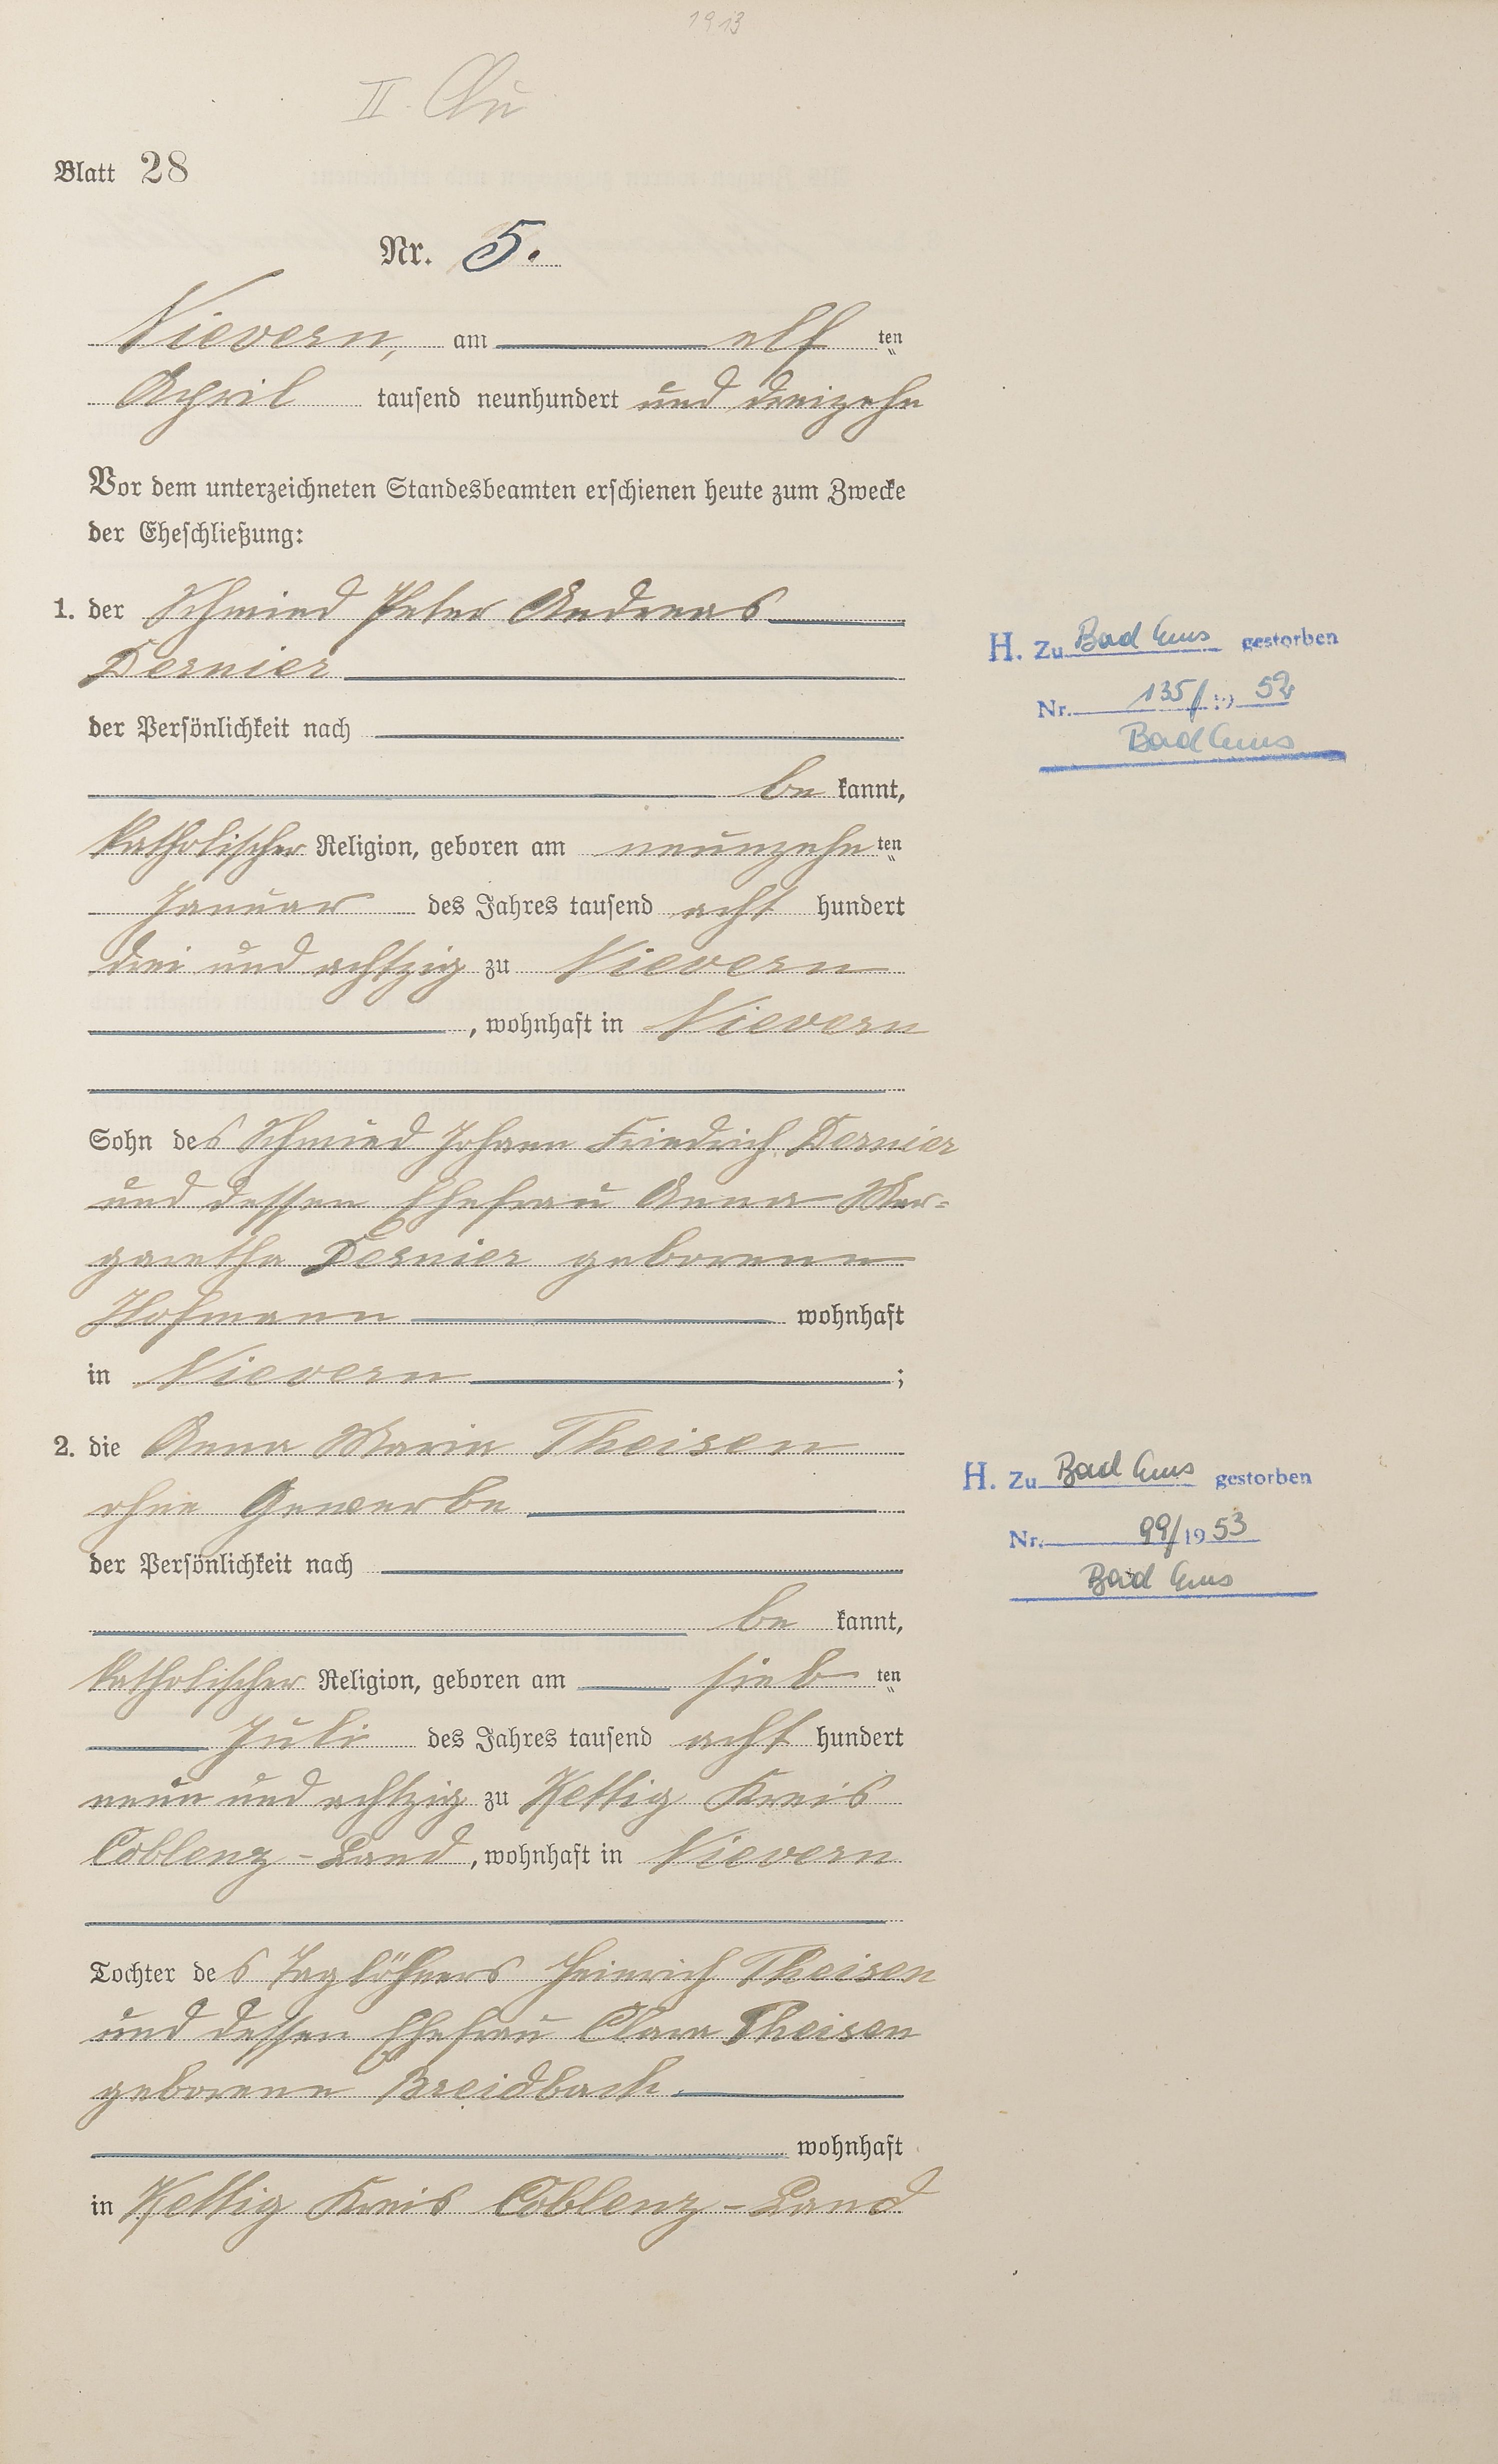 1913
II.
Blatt 28
Nr. 5.
Nievern, am elf ten
April tausend neunhundert und dreizehn
Vor dem unterzeichneten Standesbeamten erschienen heute zum Zwecke
der Eheschließung:
1. der Schmied Peter Andreas
Dernier
der Persönlichkeit nach
be kannt,
katholischer Religion, geboren am neunzehn ten
Januar des Jahres tausend acht hundert
drei und achtzig zu Nievern
, wohnhaft in Nievern
Sohn des Schmied Johann Friedrich Dernier
und dessen Ehefrau Anna Mar-
garetha Dernier geborene
Hofmann wohnhaft
in Nievern ;
2. die Anna Maria Theisen
ohne Gewerbe
der Persönlichkeit nach
be kannt,
katholischer Religion, geboren am sieb ten
Juli des Jahres tausend acht hundert
neun und achtzig zu Kettig Kreis
Coblenz-Land, wohnhaft in Nievern
Tochter des Taglöhners Heinrich Theisen
und dessen Ehefrau Clara Theisen
geborene Breidbach
wohnhaft
in Kettig Kreis Coblenz-Land
H. Zu Bad Ems gestorben
Nr. 135/19 52
Bad Ems
H. Zu Bad Ems gestorben
Nr. 99/1953
Bad Ems